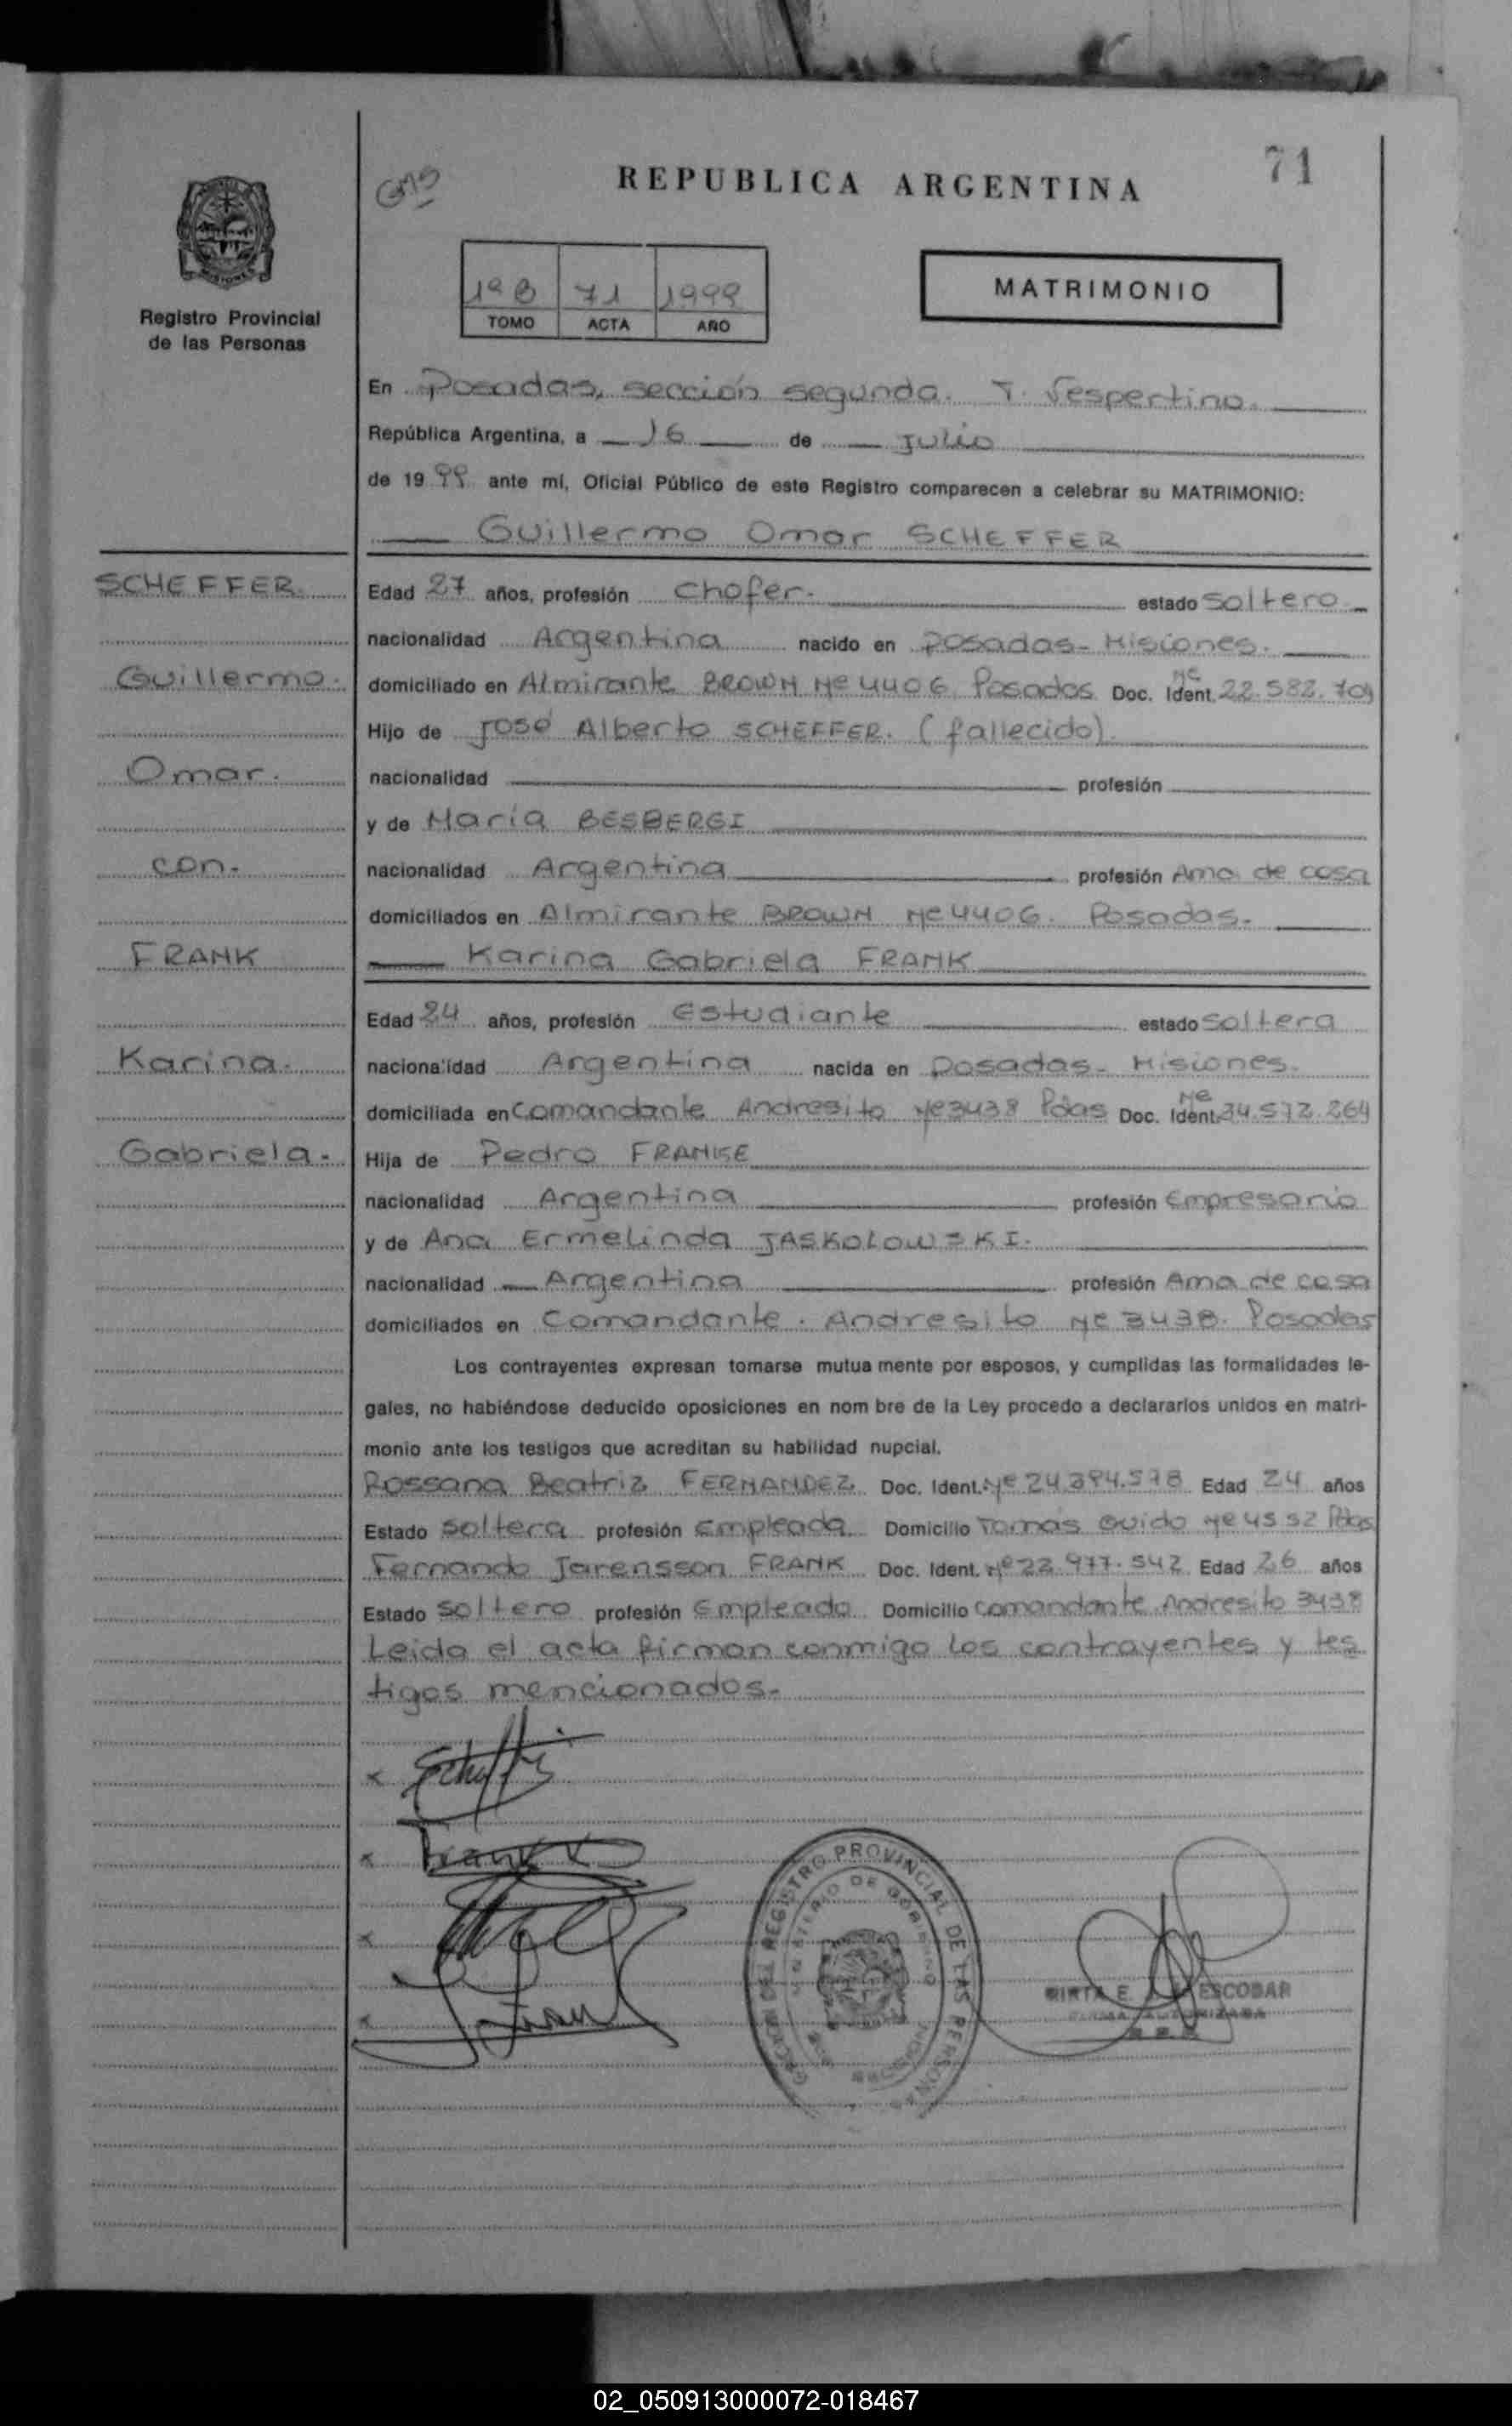 GMS
REPUBLICA ARGENTINA
71
MISIONES
Registro Provincial
de las Personas
1º B 71 1999
TOMO ACTA AÑO
MATRIMONIO
En Posadas, sección segunda. T. Vespertino.
República Argentina, a 16 de Julio
de 1999 ante mí, Oficial Público de este Registro comparecen a celebrar su MATRIMONIO:
Guillermo Omar SCHEFFER
SCHEFFER
Guillermo.
Omar.
con.
FRANK
Karina.
Gabriela.
Edad 27 años, profesión Chofer. estado soltero
nacionalidad Argentina nacido en Posadas- Misiones.
domiciliado en Almirante BROWN Nº 4406 Posadas Doc. Ident. Nº 22.582.704
Hijo de José Alberto SCHEFFER. (fallecido).
nacionalidad profesión
y de María BESBERGI
nacionalidad Argentina profesión Ama de casa
domiciliados en Almirante BROWN Nº 4406. Posadas.
Karina Gabriela FRANK
Edad 24 años, profesión Estudiante estado soltera
nacionalidad Argentina nacida en Posadas- Misiones.
domiciliada en Comandante Andresito Nº 3438 Pdas Doc. Ident. Nº 24.572.264
Hija de Pedro FRANKE
nacionalidad Argentina profesión Empresario
y de Ana Ermelinda JASKOLOWSKI.
nacionalidad Argentina profesión Ama de casa
domiciliados en Comandante. Andresito Nº 3438. Posadas
Los contrayentes expresan tomarse mutua mente por esposos, y cumplidas las formalidades le-
gales, no habiéndose deducido oposiciones en nom bre de la Ley procedo a declararlos unidos en matri-
monio ante los testigos que acreditan su habilidad nupcial.
Rossana Beatriz FERNANDEZ Doc. Ident. Nº 24.394.578 Edad 24 años
Estado soltera profesión Empleada Domicilio Tomás Guido Nº 4552 Pdas
Fernando Jarensson FRANK Doc. Ident. Nº 22.977.542 Edad 26 años
Estado soltero profesión Empleado Domicilio Comandante Andresito 3438
Leida el acta firman conmigo los contrayentes y tes
tigos mencionados.
REGISTRO PROVINCIAL DE LAS PERSONAS
MINISTERIO DE GOBIERNO
ESCOBAR
FIRMA AUTORIZADA
02_050913000072-018467